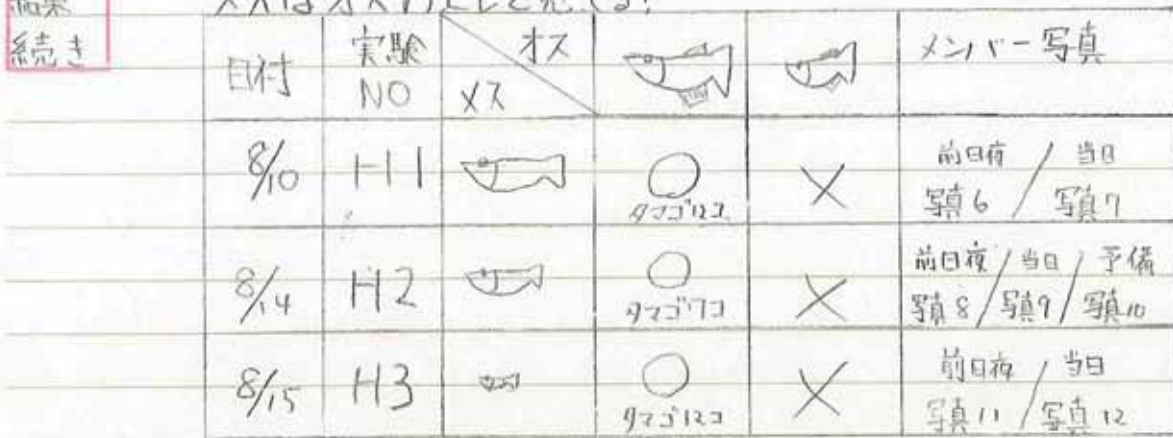 結果
続き
日付
実験
NO
オス
メス
メンバー写真
8/10
H1
○
タマゴ12コ
×
前日夜 / 当日
写真6 / 写真7
8/14
H2
○
タマゴ7コ
×
前日夜 / 当日 / 予備
写真8 / 写真9 / 写真10
8/15
H3
○
タマゴ12コ
×
前日夜 / 当日
写真11 / 写真12